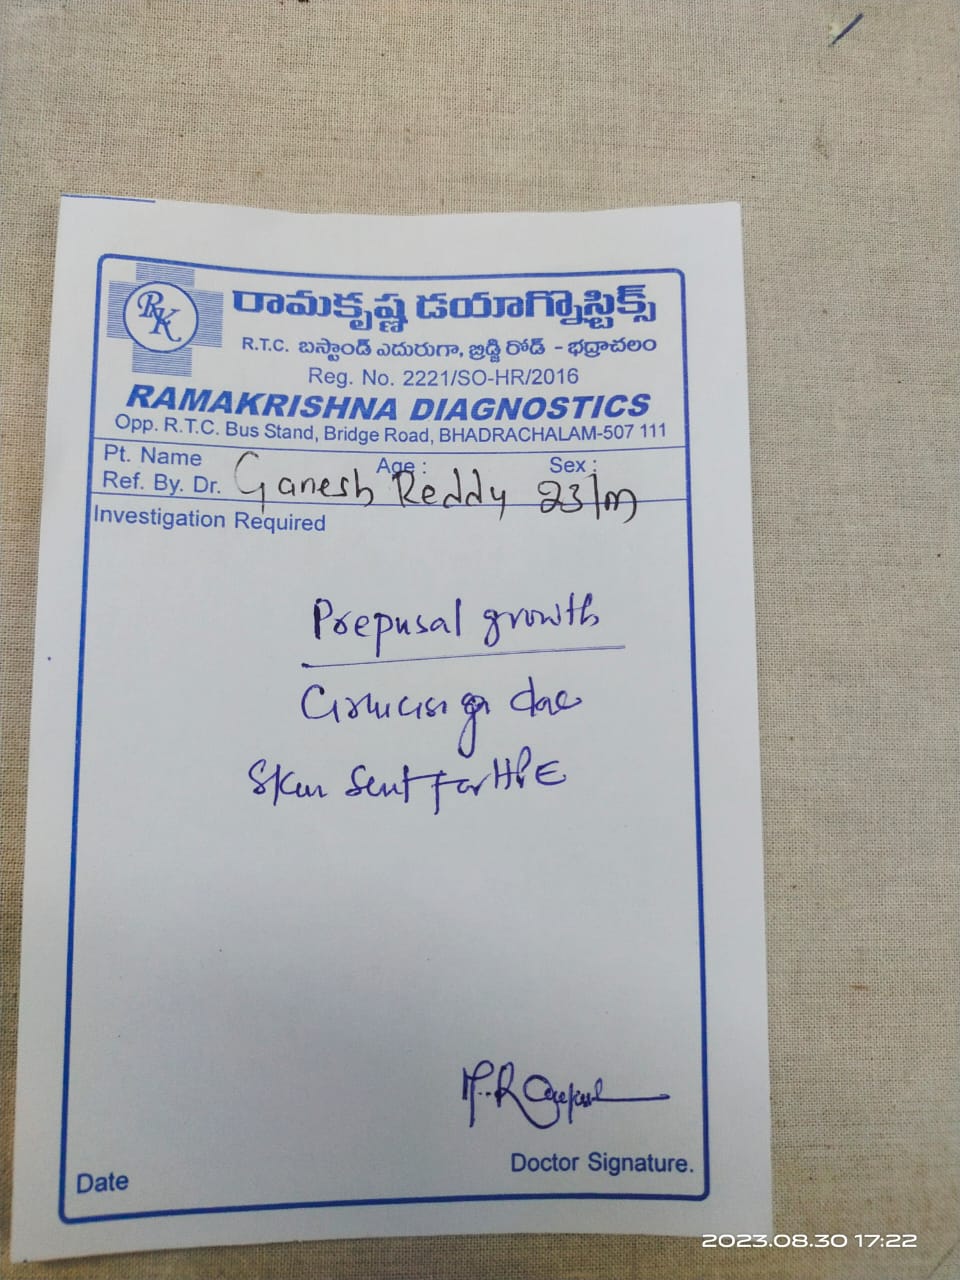 RK
రామకృష్ణ డయాగ్నొస్టిక్స్
R.T.C. బస్టాండ్ ఎదురుగా, బ్రిడ్జి రోడ్ - భద్రాచలం
Reg. No. 2221/SO-HR/2016
RAMAKRISHNA DIAGNOSTICS
Opp. R.T.C. Bus Stand, Bridge Road, BHADRACHALAM-507 111
Pt. Name Age : Sex :
Ref. By. Dr. Ganesh Reddy 23/m
Investigation Required
Prepusal growth
done
Skin Sent For HPE
Doctor Signature.
Date
2023.08.30 17:22